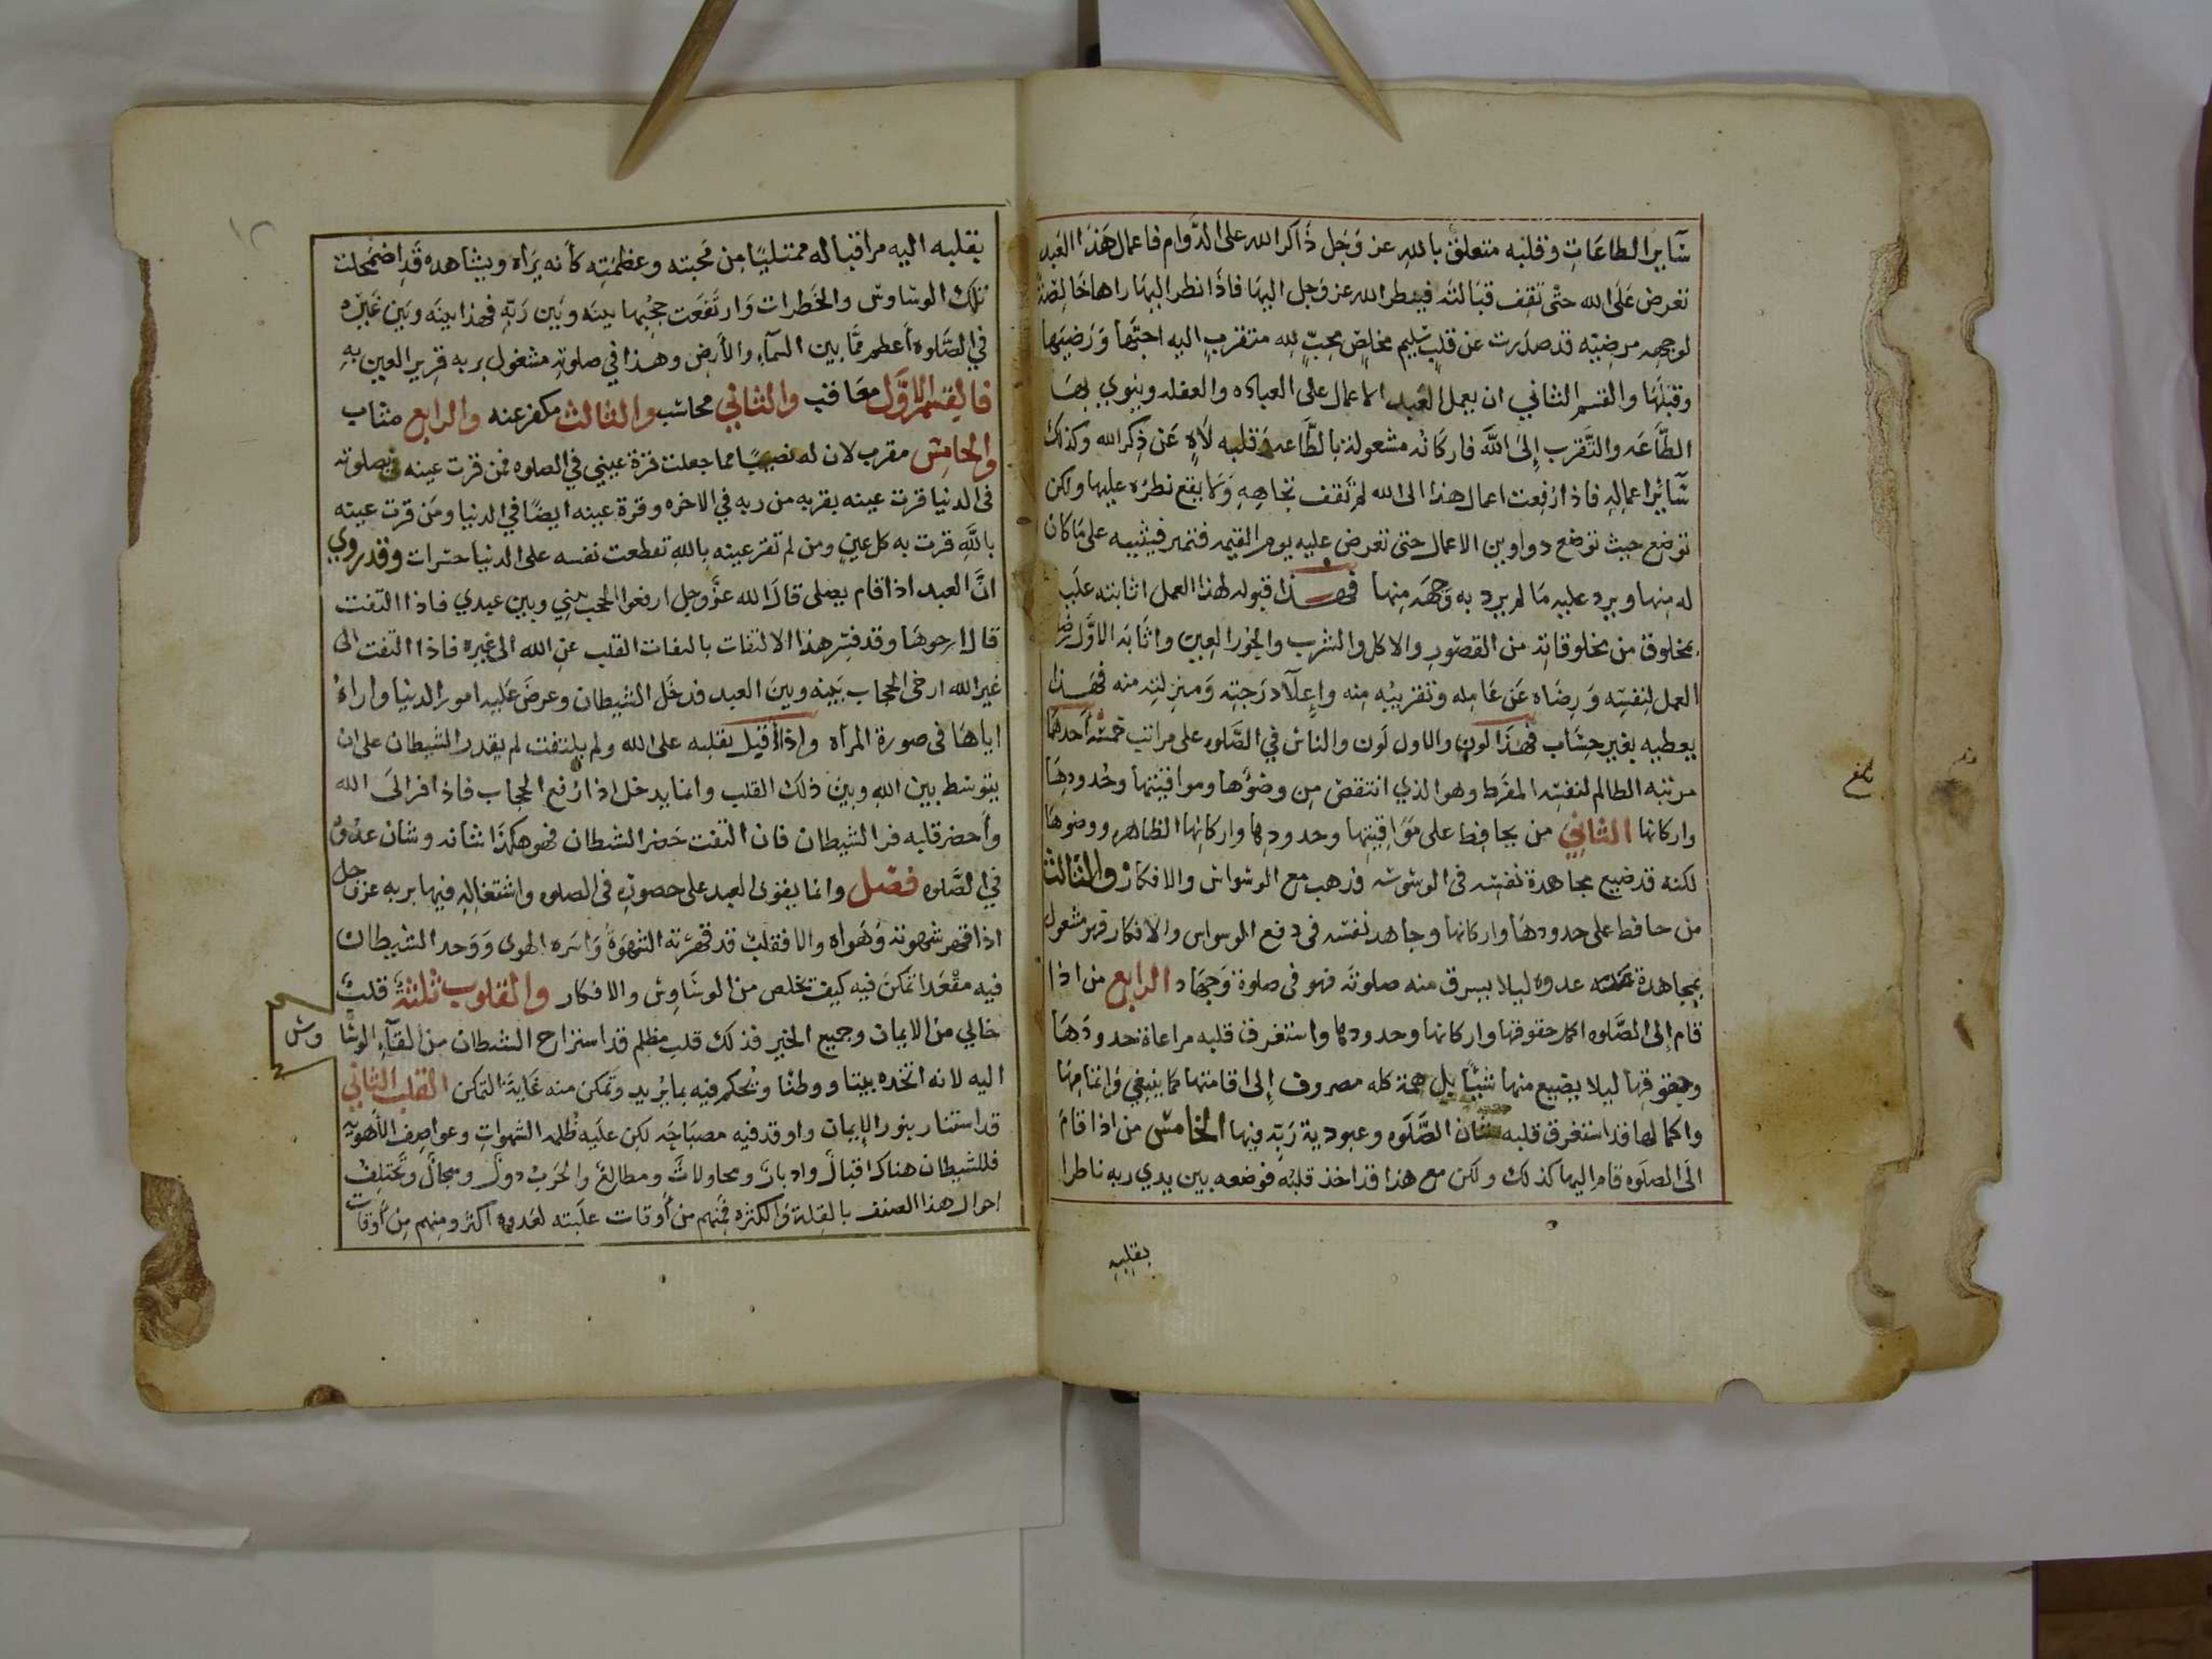 سَآيرا لطاعَاتِ وقلبه متعلق باللهِ عز وَجل ذَاكرا لله على الدَّوام فاعمال هَذا العَبد
تعرض عَلى الله حتّى تَقِف قبَالتَه فينظر الله عز وَجل اليهَا فاذَا نظر اليهَا راها خَالِصَةً
لوجهه مرضيّه قد صدَرت عن قلبٍ سَليم مخلِصٍ محِبٍّ لله متقربٍ اليه احبَّها وَرَضِيَها
وقبَلَهَا والقسم الثاني ان يعمل العَبد الاعمال على العباده والغفله وينوي بهَا
الطَّاعَه والتَّقرب إلى اللَّه فاركَانُه مشغولة بالطَّاعه وَقلبه لَاهٍ عَن ذِكر الله وكذلك
سَآئر اعمالِهِ فاذا رُفِعت اعمال هذا الى الله لمْ تَقف تجاهِهِ وَلا يقع نظرُه عليها ولكن
توضع حيث توضع دواوين الاعمال حتى تعرض عليه يوم القيمه فتميز فيثيبه على مَا كان
له مِنها ويرد عليه مَا لم يرد به وَجهَه مِنها فهــذا قبوله لهذا العمل اثابته علَيه
بمخلوق من مخلوقاتِهِ من القصُورِ والاكل والشربِ والحُور العِين واثَابَه الاوَّل رضا
العمل لِنفسِه وَرِضَاه عَن عَامِله وتقرِيبُه مِنه وإعلآد رَجتِه وَمنزلتِه منه فَهَـذا
يعطيه بغير حِسَاب فهَذا لون والاول لَون والناس في الصَّلوه على مراتب خمسَه أحدهَا
مرتبه الظالم لنفسِه المفَرط وهو الذي انتقصَ مِن وضوُها ومواقيتها وحُدودِهَا
واركانها الثانِي من يحافِظ على مَوَاقِيتِها وحدودِها واركانِها الظاهره ووضوهَا
لكنه قد ضيع مجاهدة نفسِه فى الوسوسَه فذهب مع الوسواس والافكار والثالث
من حافظ على حدودهَا واركانها وجاهد نفسَه فى دفع الوسواس والافكار فهو مشغول
بمجاهدة عدوه ليلا يسرق منه صلوتَه فهو فى صلوة وَجهَاد الرابع من اذا
قام إلى الصَّلوه اكمل حقوقها واركانها وحدودها واستغرق قلبه مراعاة حدودَهَا
وحقوقها ليلا يضيع منها شيًا بل همة كله مصروف إلى اقامتها كما ينبغي وَاتمامِهَا
واكمالها قد استغرق قلبه شان الصَّلَوه وعبودية رَبِّه فيها الخامسُ من اذا قامَ
الَى الصلَوه قام اليها كذلك ولكن مع هذا قد اخذ قلبَه فوضعه بين يدي ربه ناظرا
بقلبِهِ
بلغ
بقلبه اليه مراقبا له ممتليًا مِن مَحبته وعظمَتِه كأنه يَرَاه ويشاهده قَد اضمحلت
تلك الوسَاوس والخطرات وَارتفعَت حجُبها بينَه وبَين رَبّهِ فهذا بينَه وبَين غَيرْه
في الصَّلوه أعظم ممَّا بين السمآء والأرضِ وهذا في صلوتِهِ مشغول بربه قرير العين بهِ
فالقسم الاوَّل معَاقب والثاني محاسب والثالث مكفر عنه والرابع مثاب
والخامِسْ مقرب لان له نصيبًا مما جعلت قرة عيني في الصلوه فمن قرت عينه بصلوته
فى الدنيا قرت عينه بقربه من ربه في الاخره وقرة عينه ايضًا في الدنيا ومَن قرت عينه
باللَّهِ قرت به كل عينٍ ومن لم تقر عينه باللهِ تقطعت نفسه على الدنيا حسَرات وقد روي
انَّ العبد اذا قام يصلى قالَ الله عزَّ وجل ارفعوا الحجب بيني وبين عبدي فاذا التفت
قال ارخوهَا وقد فسِّر هذا الالتفات بالتفات القلب عنِ الله الى غيره فاذا التفت الى
غير الله ارخى الحجاب بَينه وبينَ العبد فدخَل الشيطان وعرضَ عَليه امور الدنيا واراهُ
اياهَا فى صورة المرآه واذا أقبل بقلبه على الله ولم يلتفت لم يقدر الشيطان على ان
يتوسط بين اللهِ وبينَ ذلك القلب وانما يدخل اذا رُفع الحجاب فاذا فر الَى الله
وأحضر قلبه فر الشيطان فان التفت حَضر الشيطان فهو هكذا شانه وشان عدُوهُ
في الصَّلوه فصَل وانما يقوى العبد على حضورِهِ فى الصلوه واشتغالِهِ فيها بربه عز وجل
اذا قهر شهوته وَهَواه والا فقلبٌ قد قهرته الشهوَةُ وَاسَره الهوى وَوَجد الشيطان
فيه مقْعَدا تمكنَ فيه كيف تخلص من الوسَاوس والافكار والقلوب ثلثَةَ قلبٌ
خالي من الايمان وجميع الخير فذلك قلب مظلم قد استراح الشيطان من القآءِ الوسَاوس
اليه لانه اتخده بيتا ووطنًا وتُحكم فيه بما يُريد وَتمكن منه غَايةَ التمكن القلب الثاني
قد استنار بنور الإيمان واوقد فيه مصبَاحَه لكِن عليه ظُلمه الشهوات وعواصِف الأهويَه
فللشيطان هناك اقبالٌ وادبارٌ ومحاولاتٌ ومطالعٌ والحَربْ دولٌ ومجالٌ وتَختَلفُ
احوال هذا الصنف بالقِلة وَالكثره فمِنهم من أوقات غلَبته لعَدوه أكثر ومِنهم مِن أوقات